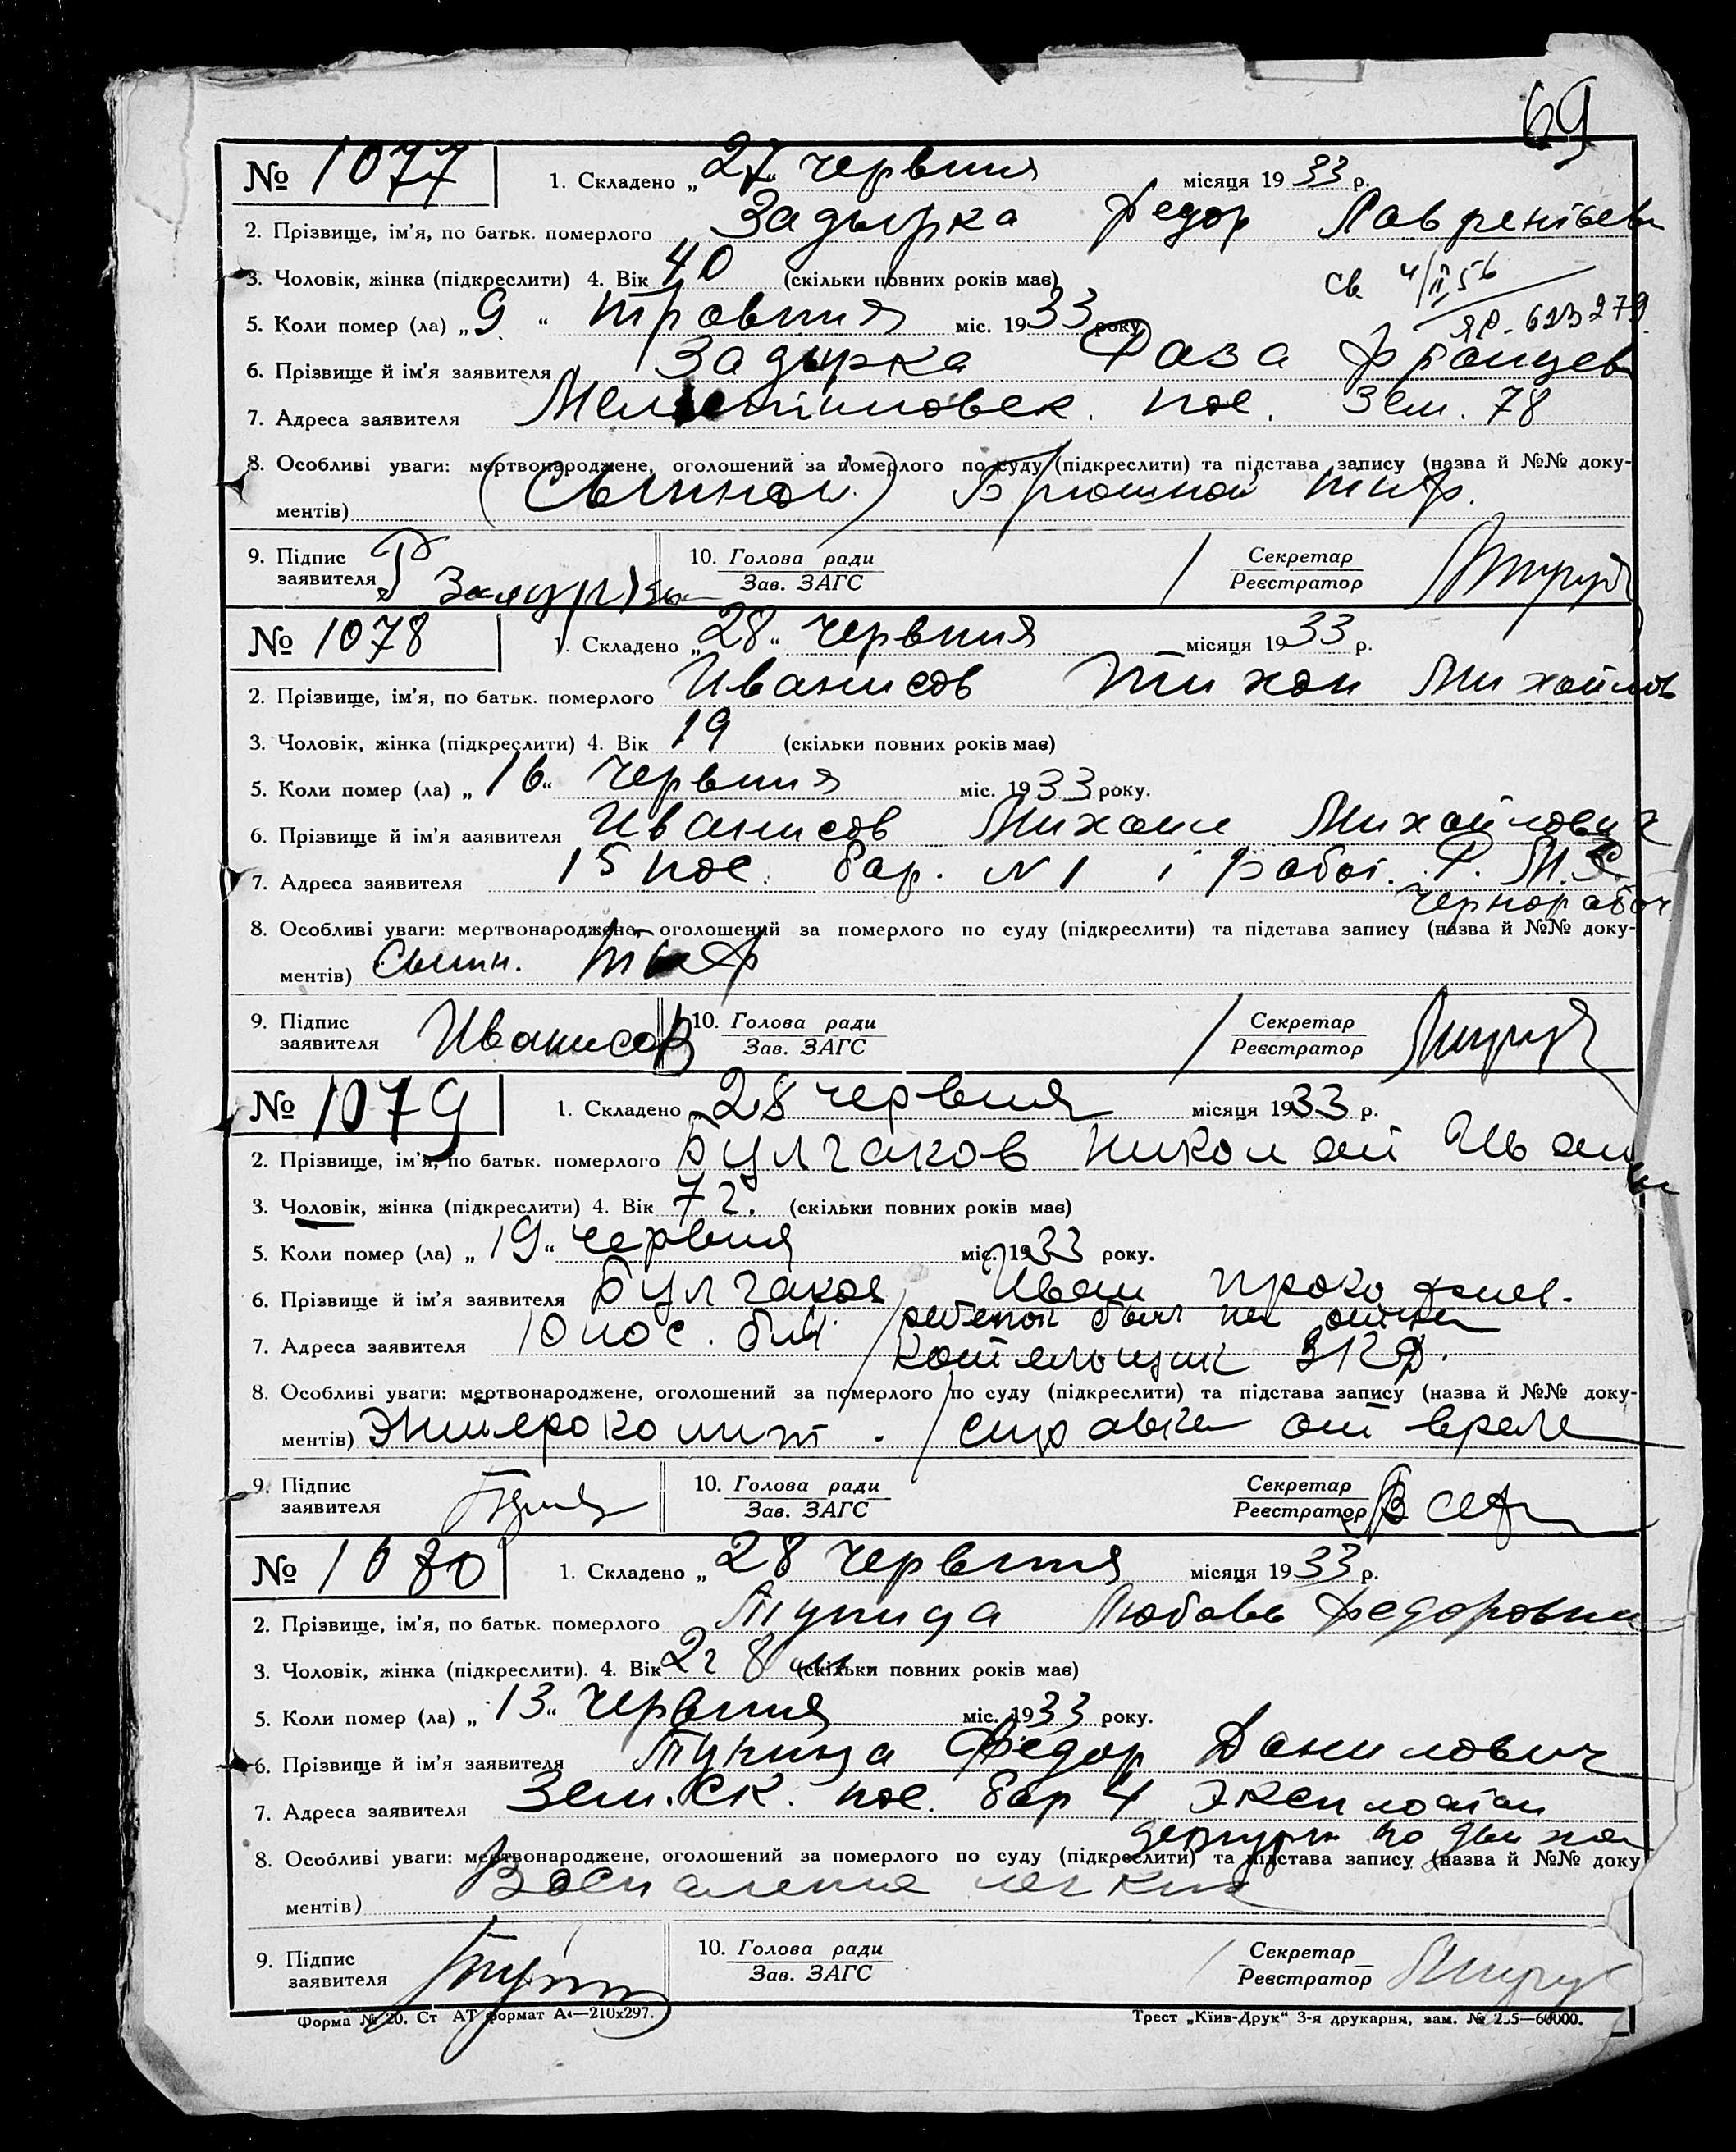 69
№ 1077 1. Складено „27“ червния місяця 1933 р.
2. Прізвище, ім’я, по батьк. померлого Задырка Федор Лаврентьев
3. Чоловік, жінка (підкреслити) 4. Вік 40 (скільки повних років має)
св 4/II 56
5. Коли помер (ла) „9“ травния міс. 1933 року
ЯР-623279
6. Прізвище й ім’я заявителя Задырка Францев
7. Адреса заявителя пос. Зем. 78
8. Особливі уваги: мертвонароджене, оголошений за померлого по суду (підкреслити) та підстава запису (назва й №№ доку-
ментів) (Сыпной.) Брюшной тиф.
9. Підпис заявителя
10. Голова ради
Зав. ЗАГС
Секретар
Реєстратор
№ 1078 1. Складено „28“ червния місяця 1933 р.
2. Прізвище, ім’я, по батьк. померлого Иванисов Тихон Михайлов
3. Чоловік, жінка (підкреслити) 4. Вік 19 (скільки повних років має)
5. Коли помер (ла) „16“ червния міс. 1933 року.
6. Прізвище й ім’я ааявителя Иванисов Михаил Михайлович
7. Адреса заявителя 15 пос. бар. N 1 работ.
чернорабоч
8. Особливі уваги: мертвонароджене, оголошений за померлого по суду (підкреслити) та підстава запису (назва й №№ доку-
ментів) Сыпн. тиф
9. Підпис заявителя Иванисов
10. Голова ради
Зав. ЗАГС
Секретар
Реєстратор
№ 1079 1. Складено „28 червния місяця 1933 р.
2. Прізвище, ім’я, по батьк. померлого Булгаков Николай Иван
3. Чоловік, жінка (підкреслити) 4. Вік 7 г. (скільки повних років має)
5. Коли помер (ла) „19“ червния міс. 1933 року.
6. Прізвище й ім’я заявителя Булгаков Иван Прокофиев.
ребенок был на
7. Адреса заявителя 10 пос. Котельщик
8. Особливі уваги: мертвонароджене, оголошений за померлого по суду (підкреслити) та підстава запису (назва й №№ доку-
ментів) Энтероколит. / справка от врача
9. Підпис заявителя
10. Голова ради
Зав. ЗАГС
Секретар
Реєстратор
№ 1080 1. Складено „28 червния місяця 1933 р.
2. Прізвище, ім’я, по батьк. померлого Тупица Любовь Федоровна
3. Чоловік, жінка (підкреслити). 4. Вік 2 г 8 м. (скільки повних років має)
5. Коли помер (ла) „13“ червния міс. 1933 року.
6. Прізвище й ім’я заявителя Тупица Федор Данилович
7. Адреса заявителя Зем. ск. пос. бар 4
по
8. Особливі уваги: мертвонароджене, оголошений за померлого по суду (підкреслити) та підстава запису (назва й №№ доку
ментів) Воспаление легких
9. Підпис заявителя
10. Голова ради
Зав. ЗАГС
Секретар
Реєстратор
Форма № 20. Ст АТ формат А4—210х297. Трест „Київ-Друк“ 3-я друкарня, зам. №